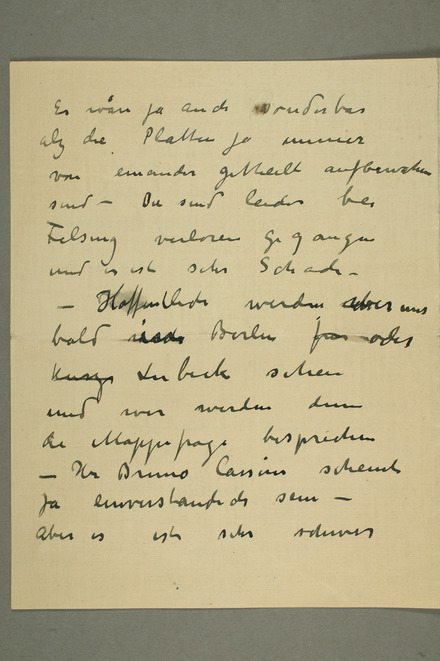 Es wär ja auch sonderbar
als die Platten ja immer
von einander getheilt aufbewahrt
sind – Die sind leider bei
Felsing verloren gegangen
und es ist sehr Schade –
– Hoffentlich werden wir uns
bald in Berlin oder
Lubeck sehen
und wir werden dann
die Mappefrage besprechen
– Hr Bruno Cassirer scheint
ja einverstanden sein –
aber es ist sehr schwer